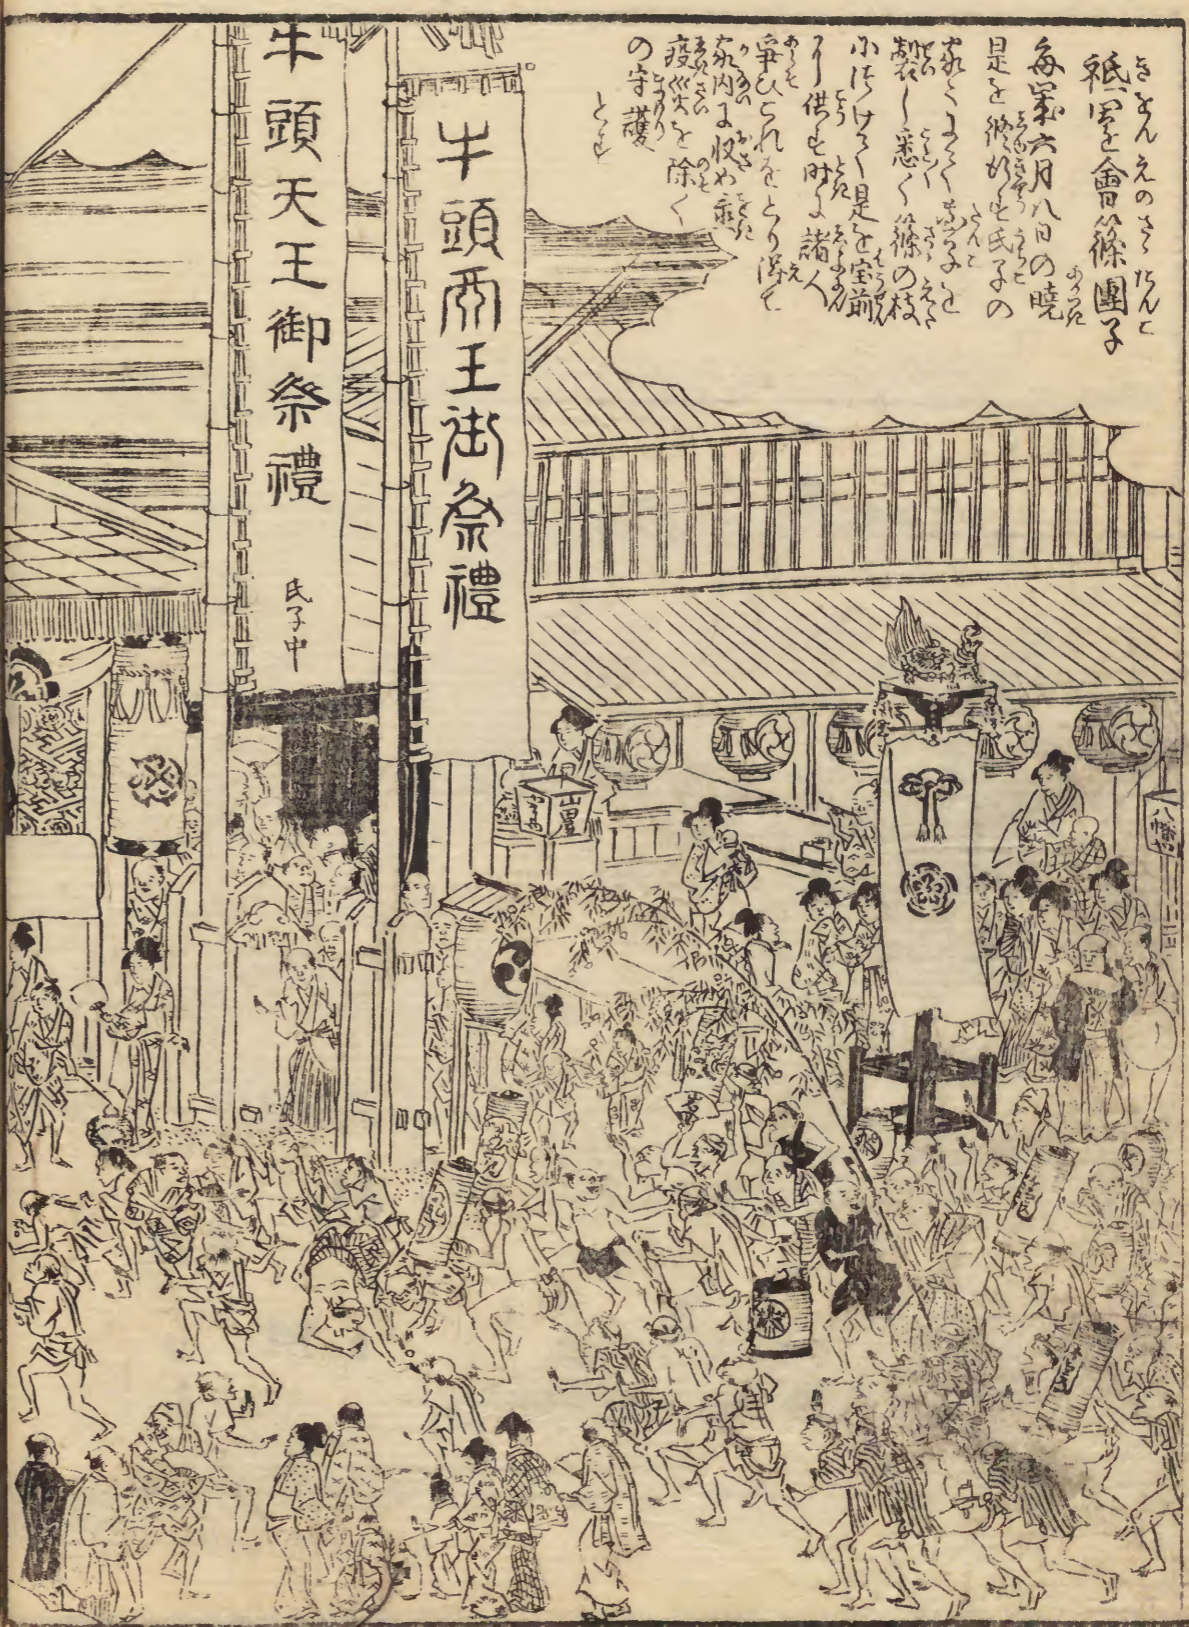 祇園會篠團子
毎歳六月八日の暁
是を修行す氏子の
家々にて團子を
製し悉く篠の枝
に付けて是を宝前
に供す時に諸人
争ひこれをとり得て
家内に収め
疫災を除く
の守護
とす
牛頭天王御祭禮
牛頭天王御祭禮
氏子中
八幡